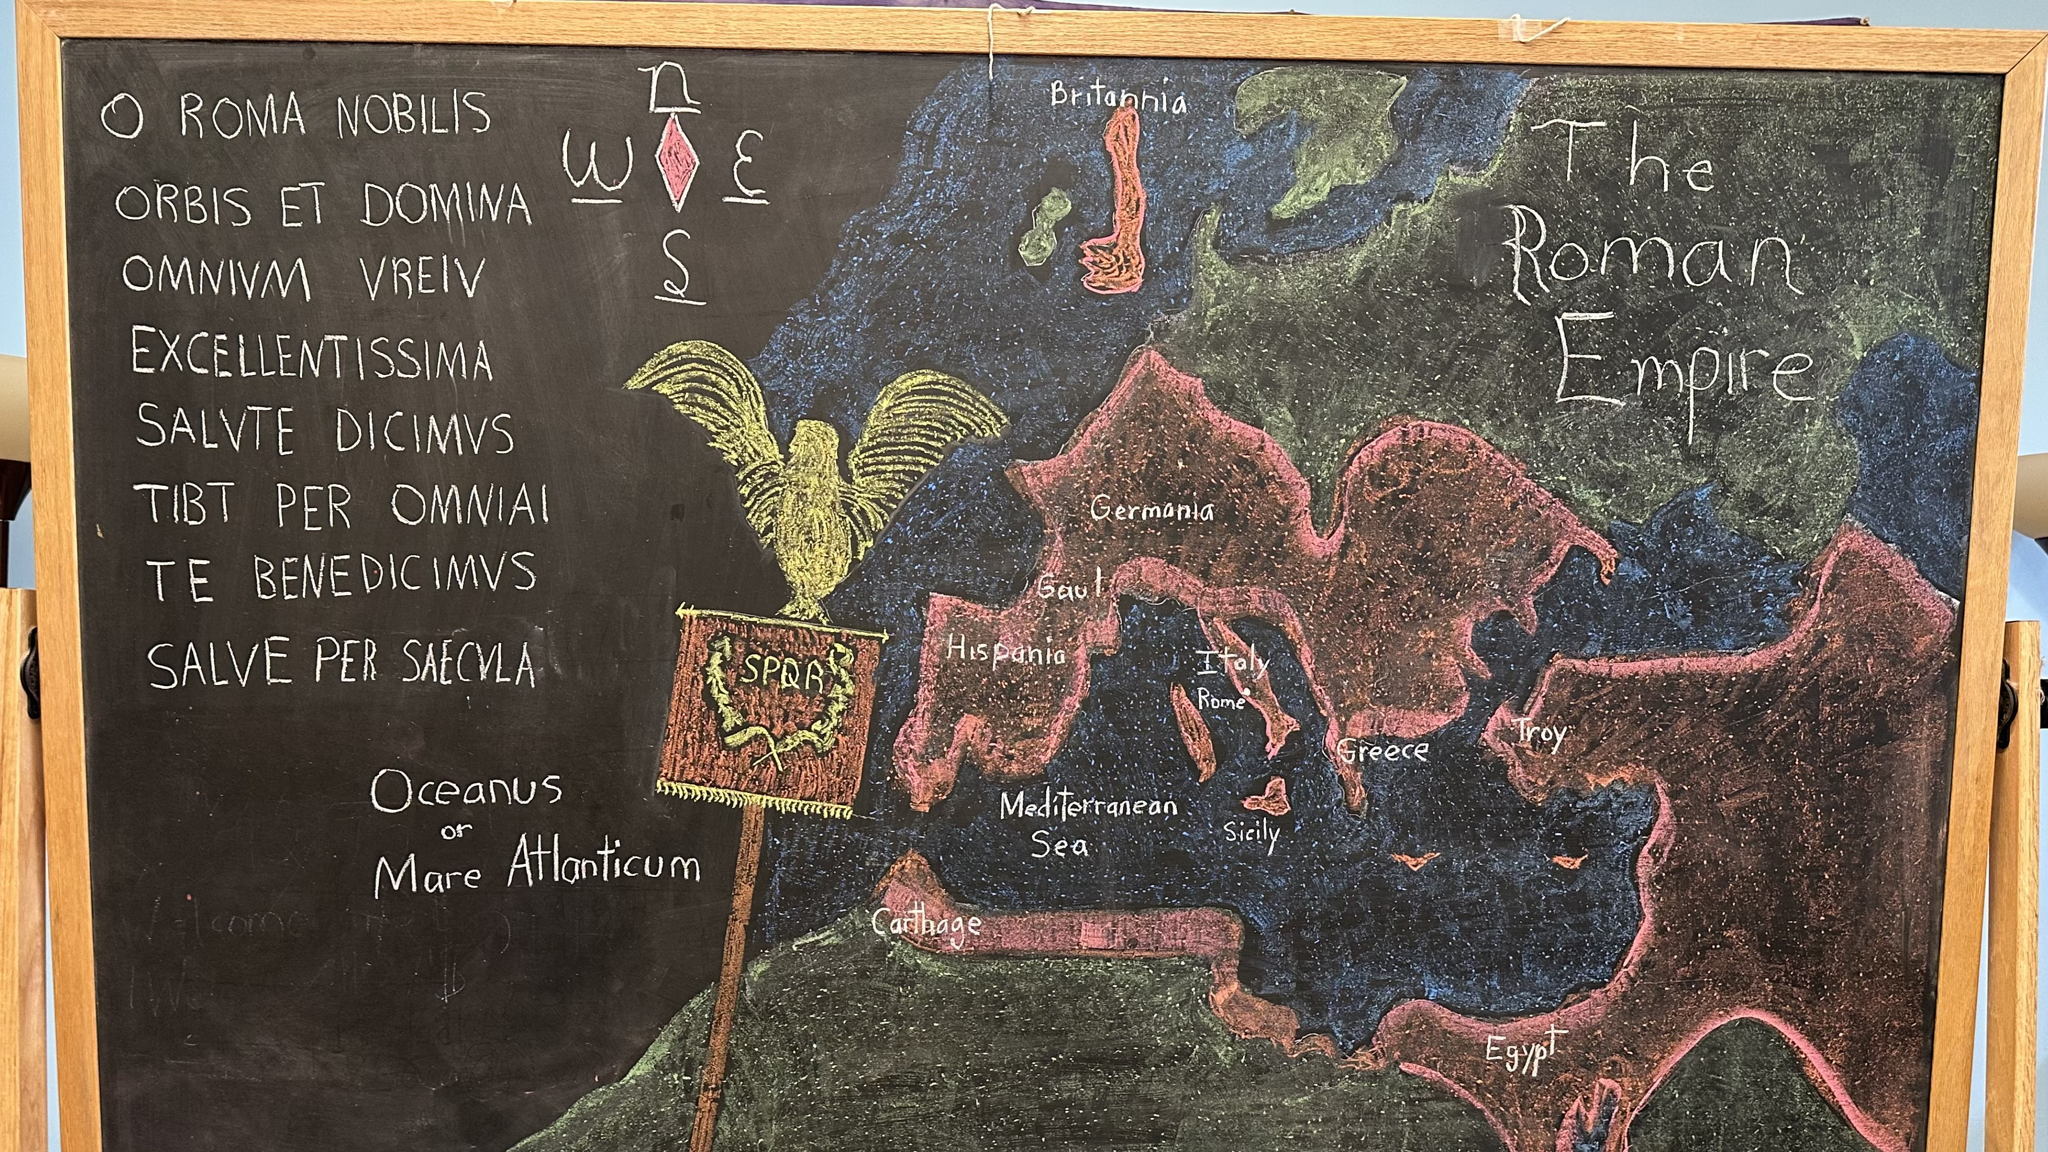 O ROMA NOBILIS
ORBIS ET DOMINA
OMNIVM VREIV
EXCELLENTISSIMA
SALVTE DICIMVS
TIBT PER OMNIAI
TE BENEDICIMVS
SALVE PER SAECVLA
n
W E
S
SPQR
Oceanus
or
Mare Atlanticum
The
Roman
Empire
Britannia
Germania
Gaul
Hispania
Italy
Rome
Greece
Troy
Mediterranean
Sea
Sicily
Carthage
Egypt
Welcome